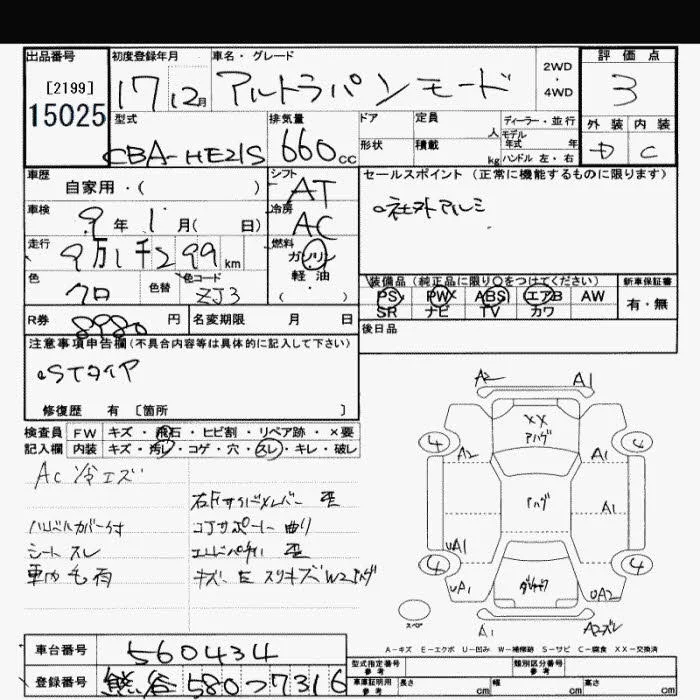 出品番号 初度登録年月 車名・グレード 2WD・4WD 評価点
[2199] 17 12月 アルトラパン モード 3
15025 型式 排気量 ドア 定員 人 ディーラー・並行 外装 内装
CBA-HE21S 660cc 形状 積載 kg モデル年式 年 ハンドル 左・右 D C
車歴 自家用・( ) シフト AT セールスポイント(正常に機能するものに限ります)
車検 9年 1月( 日) 冷房 AC 社外アルミ
走行 9万1千299km 燃料 ガソリン
色 クロ 色替 色コード ZJ3 軽油 ( ) 装備品(純正品に限り○をつけてください) 新車保証書
PS PW ABS エアB AW 有・無
SR ナビ TV カワ
R券 8980円 名変期限 月 日 後日品
注意事項申告欄(不具合内容等は具体的に記入して下さい)
STタイヤ
修復歴 有 [箇所 ]
検査員 FW キズ・飛石・ヒビ割・リペア跡・×要
記入欄 内装 キズ・汚レ・コゲ・穴・スレ・キレ・破レ
AC冷エズ
右Fサイドメンバー 歪
ハンドルカバー付 コアサポート 曲り
シート スレ エンドパネル 歪
車内毛有
A2 A1
XX
アハゲ
4 4
A2 A1
アハゲ
A1
UA1
4 4
UA1 UA2
スペア A1 A2スレ
A-キズ E-エクボ U-凹み W-補修跡 S-サビ C-腐食 XX-交換済
車台番号 560434 型式指定番号 参考 類別区分番号 参考
登録番号 熊谷 580 つ 7316 車庫証明用 参考 長さ cm 幅 cm 高さ cm